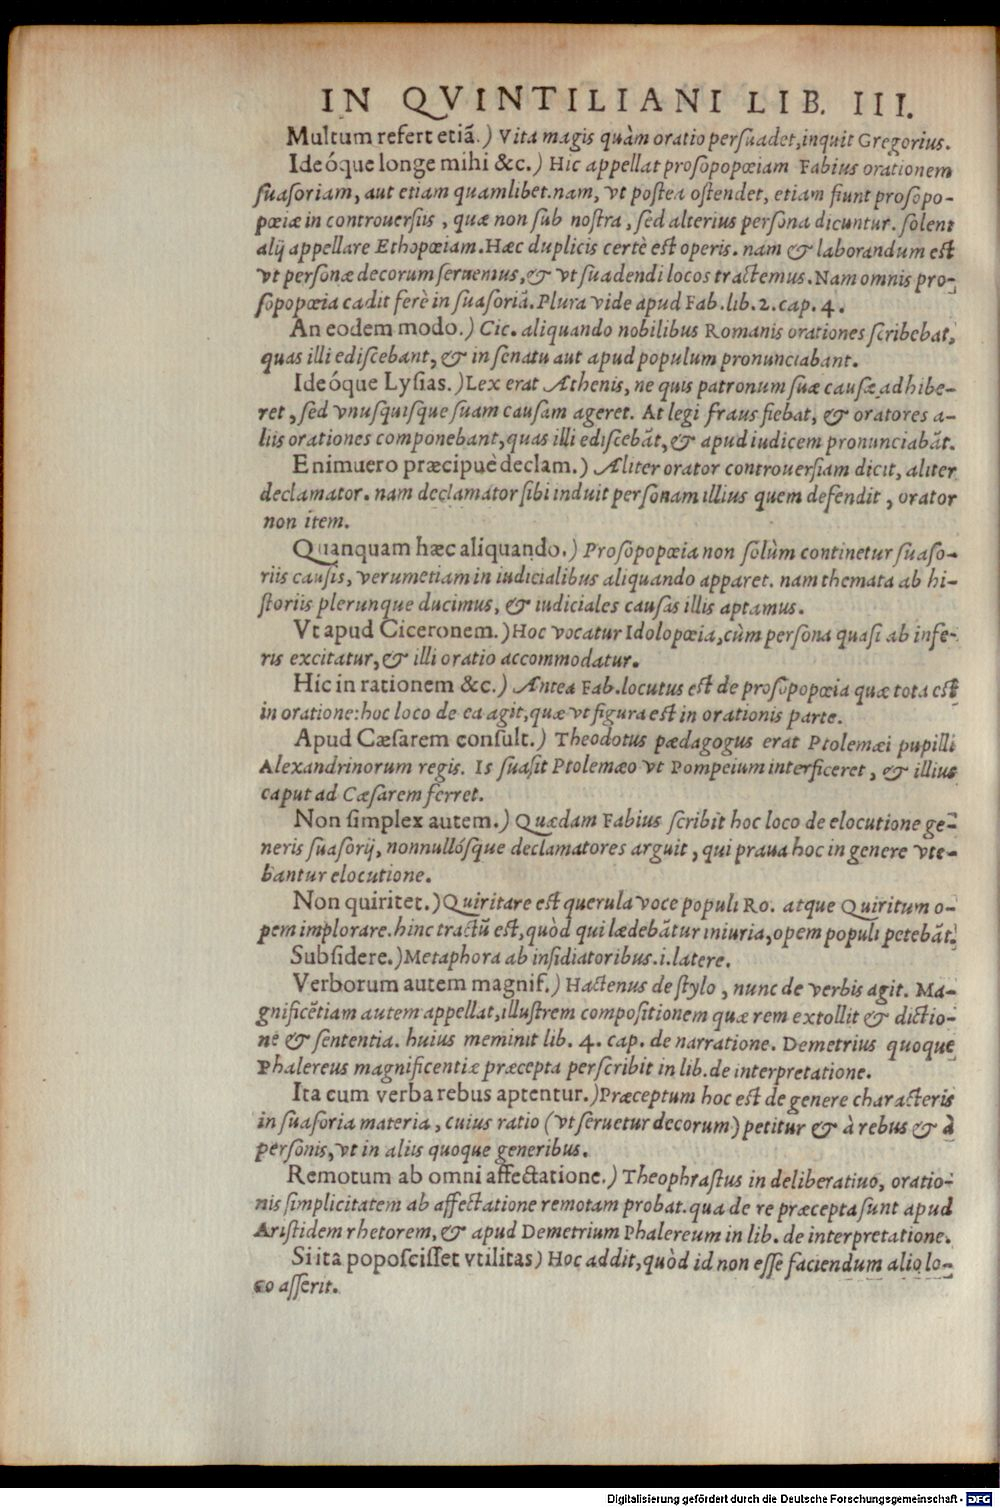 IN QVINTILIANI LIB. III.
Multum refert etiã.) Vita magis quàm oratio persuadet, inquit Gregorius.
Ideóque longe mihi &c.) Hic appellat prosopopœiam Fabius orationem
suasoriam, aut etiam quamlibet. nam, vt postea ostendet, etiam fiunt prosopo-
pœiæ in controuersiis, quæ non sub nostra, sed alterius persona dicuntur. solent
alij appellare Ethopœiam. Hæc duplicis certè est operis. nam & laborandum est
vt personæ decorum seruemus, & vt suadendi locos tractemus. Nam omnis pro-
sopopœia cadit ferè in suasoriã. Plura vide apud Fab. lib. 2. cap. 4.
An eodem modo.) Cic. aliquando nobilibus Romanis orationes scribebat,
quas illi ediscebant, & in senatu aut apud populum pronunciabant.
Ideóque Lysias.) Lex erat Athenis, ne quis patronum suæ causæ adhibe-
ret, sed vnusquisque suam causam ageret. At legi fraus fiebat, & oratores a-
liis orationes componebant, quas illi ediscebãt, & apud iudicem pronunciabãt.
Enimuero præcipuè declam.) Aliter orator controuersiam dicit, aliter
declamator. nam declamator sibi induit personam illius quem defendit, orator
non item.
Quanquam hæc aliquando.) Prosopopœia non solùm continetur suaso-
riis causis, verumetiam in iudicialibus aliquando apparet. nam themata ab hi-
storiis plerunque ducimus, & iudiciales causas illis aptamus.
Vt apud Ciceronem.) Hoc vocatur Idolopœia, cùm persona quasi ab infe-
ris excitatur, & illi oratio accommodatur.
Hic in rationem &c.) Antea Fab. locutus est de prosopopœia quæ tota est
in oratione: hoc loco de ea agit, quæ vt figura est in orationis parte.
Apud Cæsarem consult.) Theodotus pædagogus erat Ptolemæi pupilli
Alexandrinorum regis. Is suasit Ptolemæo vt Pompeium interficeret, & illius
caput ad Cæsarem ferret.
Non simplex autem.) Quædam Fabius scribit hoc loco de elocutione ge-
neris suasorij, nonnullósque declamatores arguit, qui praua hoc in genere vte-
bantur elocutione.
Non quiritet.) Quiritare est querula voce populi Ro. atque Quiritum o-
pem implorare. hinc tractũ est, quòd qui lædebãtur iniuria, opem populi petebãt.
Subsidere.) Metaphora ab insidiatoribus. i. latere.
Verborum autem magnif.) Hactenus de stylo, nunc de verbis agit. Ma-
gnificẽtiam autem appellat, illustrem compositionem quæ rem extollit & dictio-
ne & sententia. huius meminit lib. 4. cap. de narratione. Demetrius quoque
Phalereus magnificentiæ præcepta perscribit in lib. de interpretatione.
Ita cum verba rebus aptentur.) Præceptum hoc est de genere characteris
in suasoria materia, cuius ratio (vt seruetur decorum) petitur & à rebus & à
personis, vt in aliis quoque generibus.
Remotum ab omni affectatione.) Theophrastus in deliberatiuo, oratio-
nis simplicitatem ab affectatione remotam probat. qua de re præcepta sunt apud
Aristidem rhetorem, & apud Demetrium Phalereum in lib. de interpretatione.
Si ita poposcisset vtilitas) Hoc addit, quòd id non esse faciendum alio lo-
co asserit.
Digitalisierung gefördert durch die Deutsche Forschungsgemeinschaft - DFG